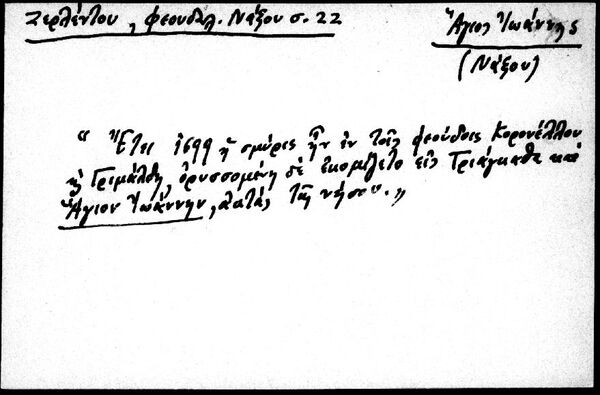 Ζερλέντου, φεουδαλ. Νάξου σ. 22
Ἅγιος Ἰωάννης
(Νάξου)
“ Ἔτει 1699 ἡ σμύρις ἦν ἐν τοῖς φεούδοις Κορονέλλου
ϗ Γριμάλδη, ὀρυσσομένη δὲ ἐκομίζετο εἰς Τριάγκαθα καὶ
Ἅγιον Ἰωάννην, τῆς νήσου. „